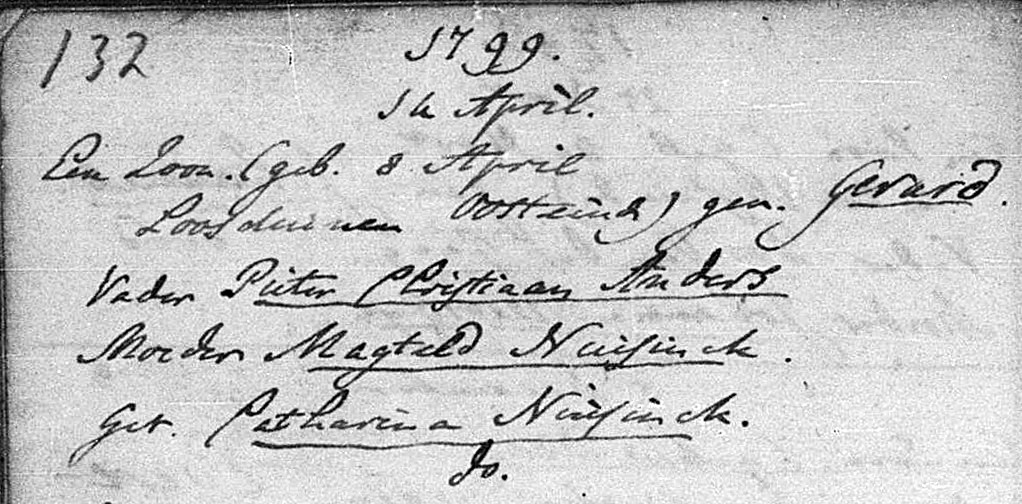 132
1799.
14 April.
Een Zoon. (geb. 8 April
Loosduinen Oosteinde) gen. Gerard.
Vader Pieter Christiaan Anders
Moeder Magteld Nuijsinck.
Get. Catharina Nuijsinck.
do.